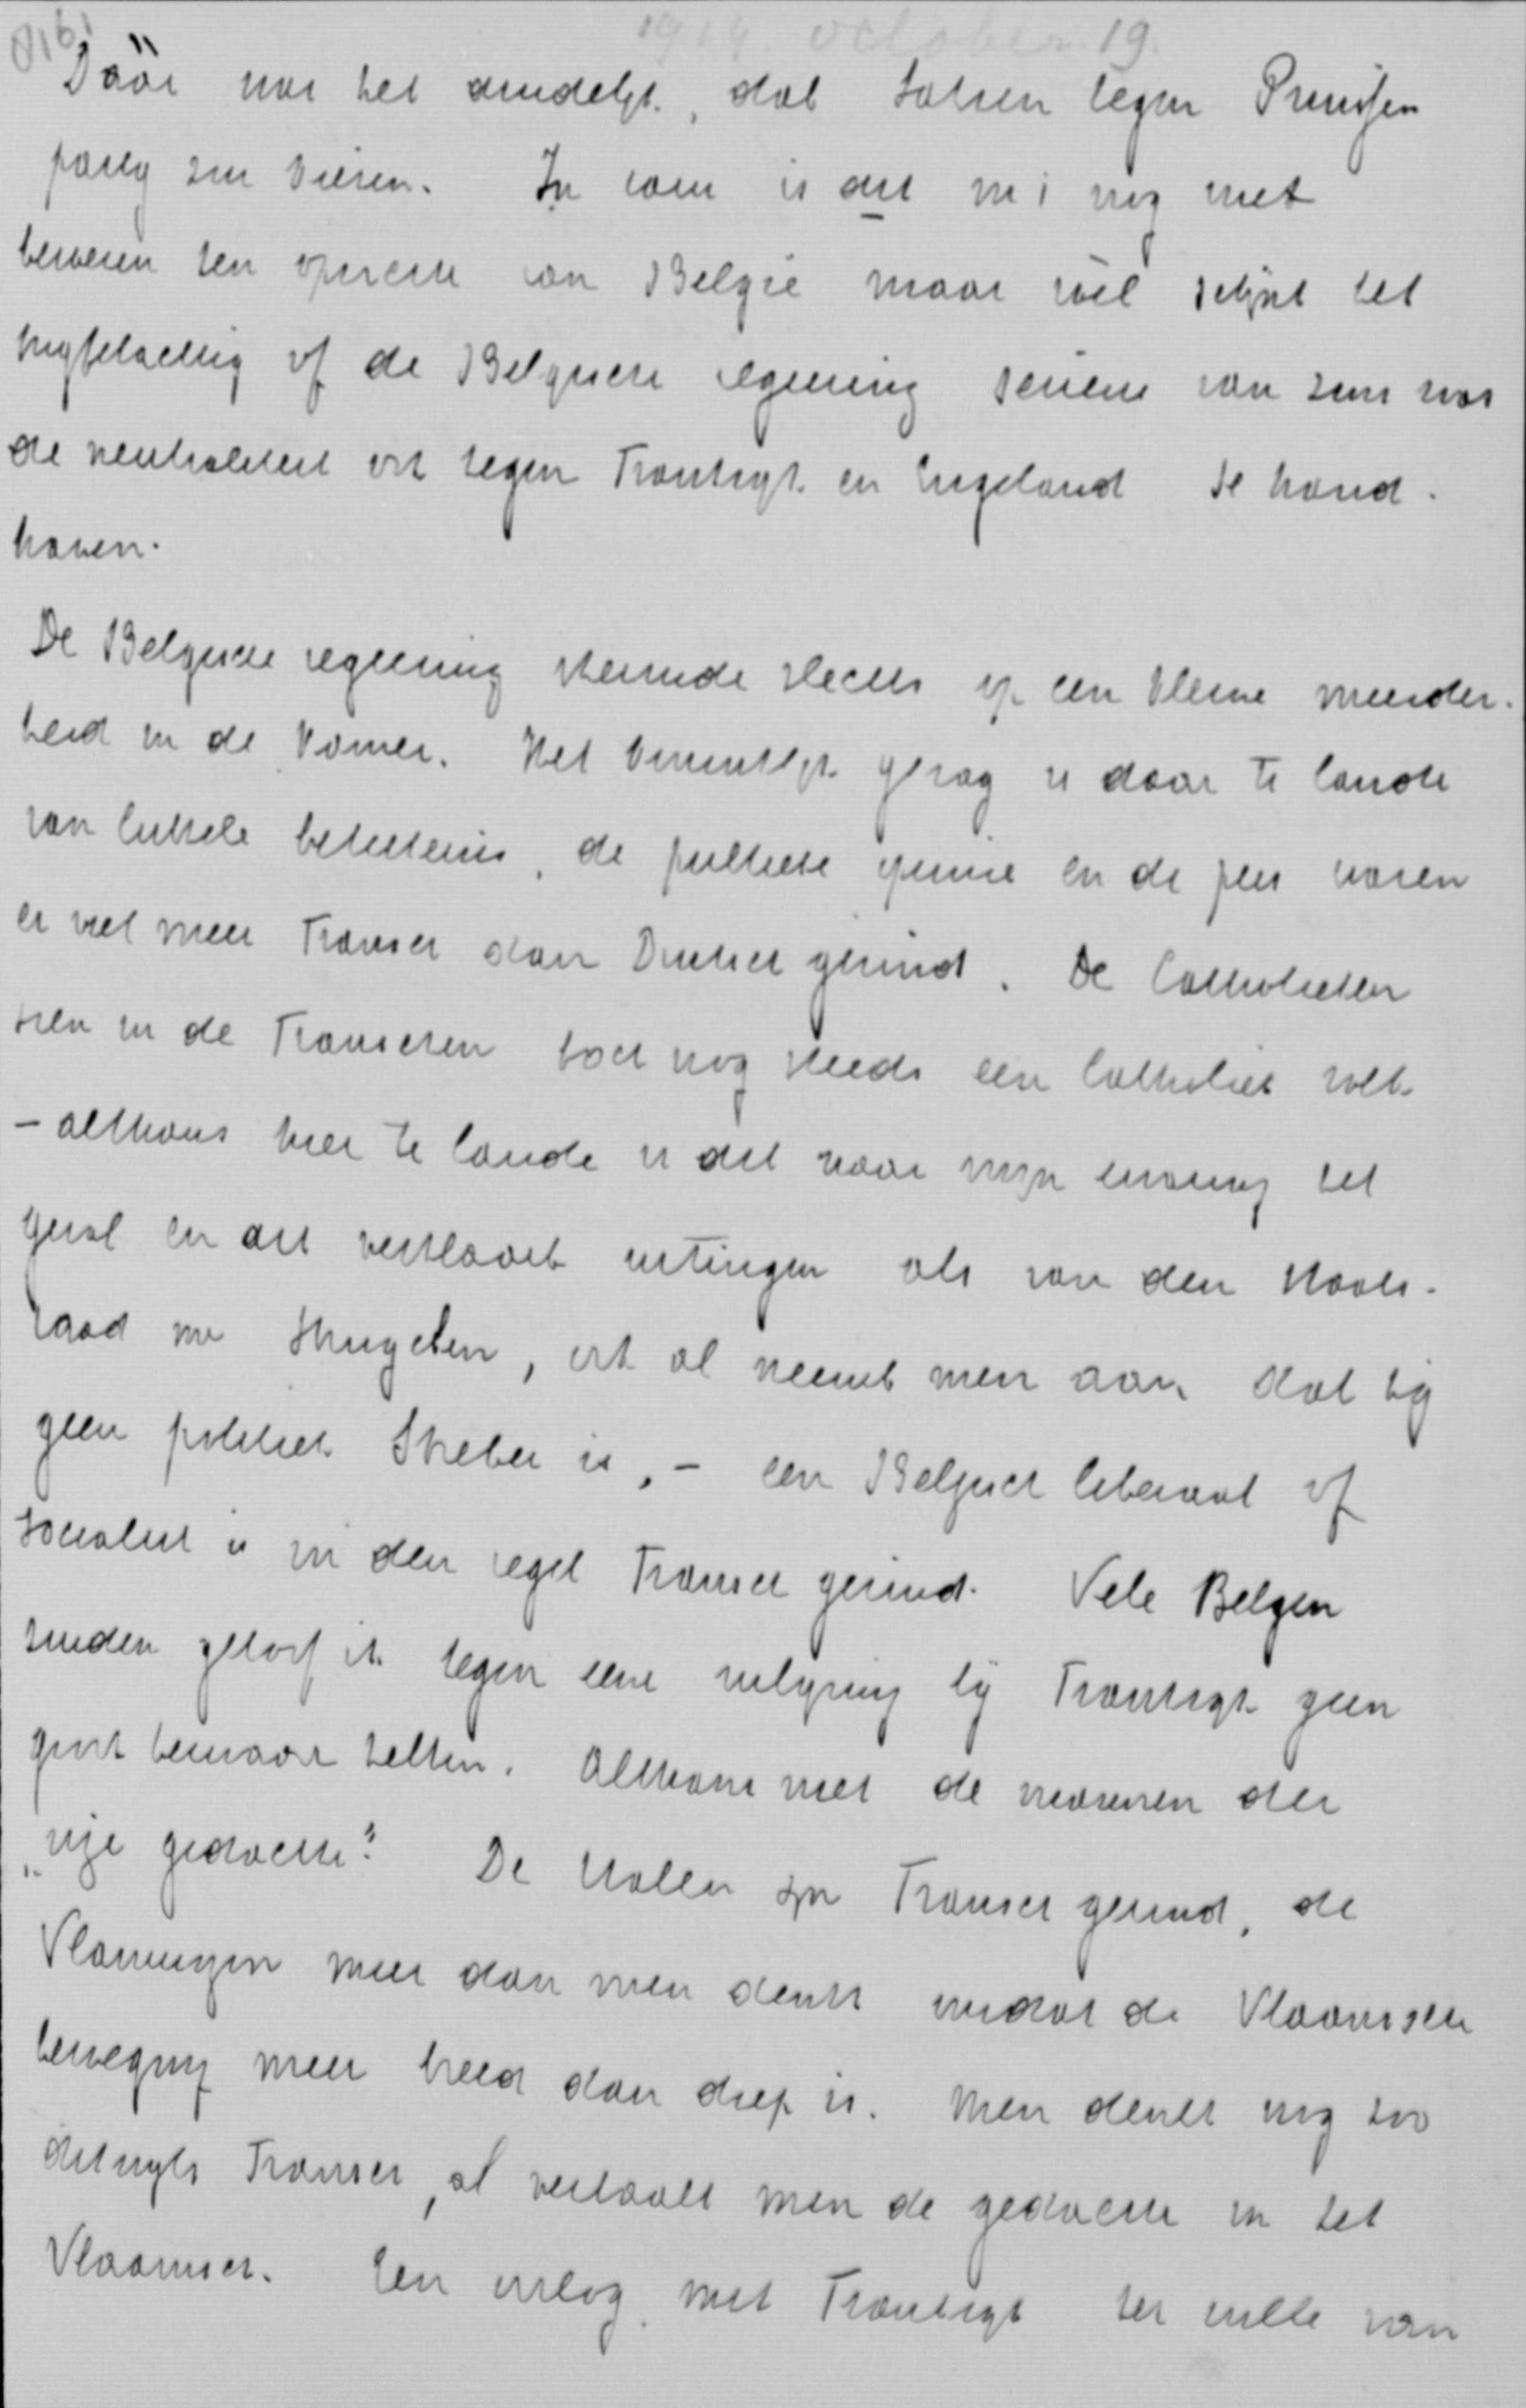 1914 october 19.
Dáár was het duidelijk, dat Saksen tegen Pruissen
partij zou kiezen. In casu is dit m i nog niet
bewezen ten opzichte van België maar wèl schijnt het
twijfelachtig of de Belgische regeering serieus van zins was
de neutraliteit ook tegen Frankrijk en Engeland te hand-
haven.
De Belgische regeering steunde slechts op een kleine meerder-
heid in de Kamer. Het Koninklijk gezag is daar te lande
van luttele beteekenis, de publieke opinie en de pers waren
er veel meer Fransch dan Duitsch gezind. De Catholieken
zien in de Franschen toch nog steeds een Catholiek volk
- althans hier te lande is dit naar mijn ervaring het
geval en dit verklaart uitingen als van den Staats-
raad mr Struycken, ook al neemt men aan dat hij
geen politiek Streber is, - een Belgisch liberaal of
socialist is in den regel Fransch gezind. Vele Belgen
zouden geloof ik tegen eene inlijving bij Frankrijk geen
groot bezwaar hebben. Althans niet de mannen der
"vrije gedachte". De Walen zijn Fransch gezind, de
Vlamingen meer dan men denkt omdat de Vlaamsche
beweging meer breed dan diep is. Men denkt nog zoo
dikwijls Fransch, al vertaalt men de gedachte in het
Vlaamsch. Een oorlog met Frankrijk ter wille van